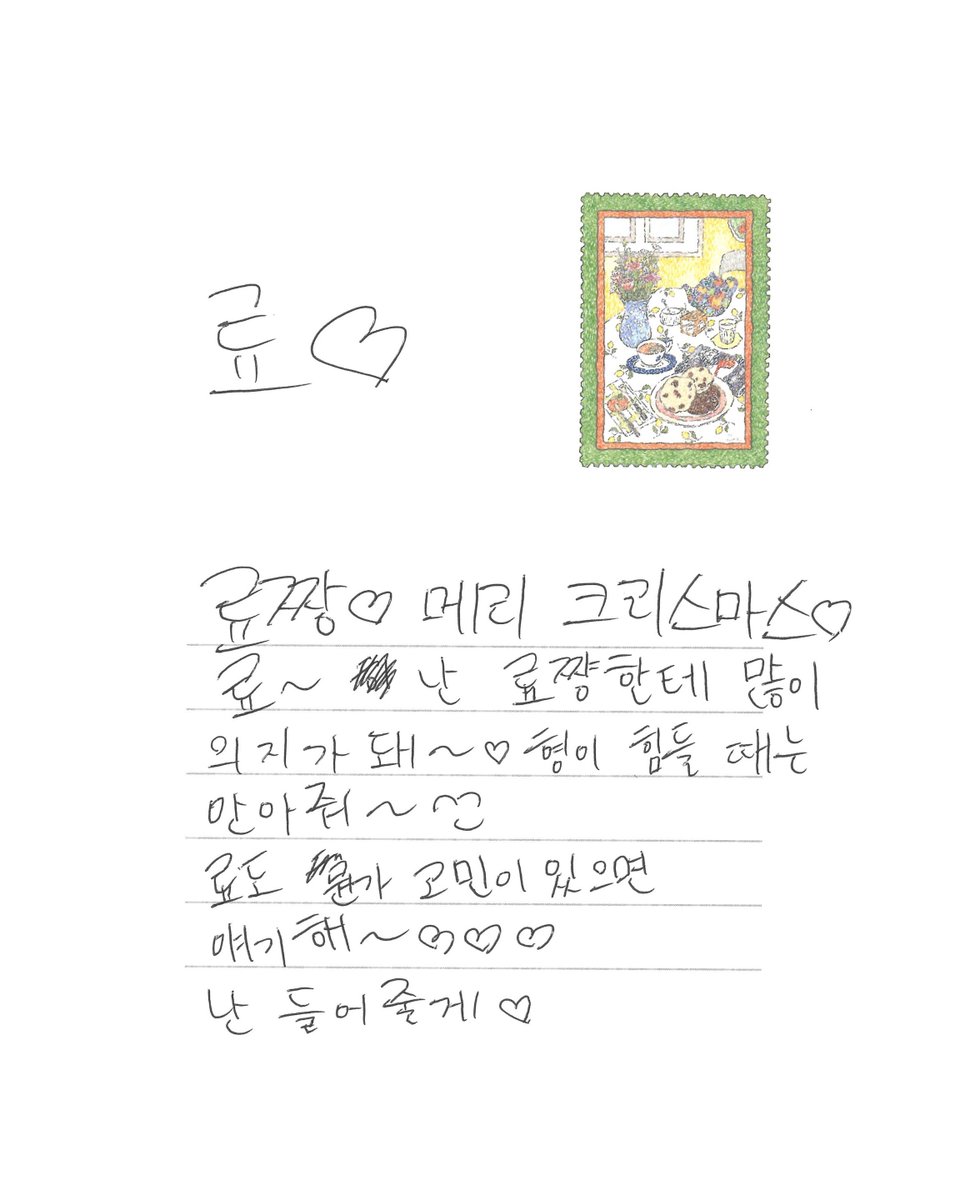 료♡
료짱♡ 메리 크리스마스♡
료~ 난 료쨩한테 많이
의지가 돼~♡ 형이 힘들 때는
안아줘~♡
료도 뭔가 고민이 있으면
얘기해~♡♡♡
난 들어줄게♡